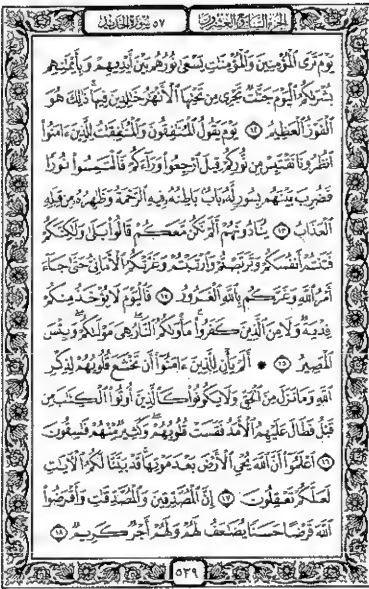 الجزء السابع والعشرون ٥٧ سورة الحديد
يَوْمَ تَرَى ٱلْمُؤْمِنِينَ وَٱلْمُؤْمِنَٰتِ يَسْعَىٰ نُورُهُم بَيْنَ أَيْدِيهِمْ وَبِأَيْمَٰنِهِم
بُشْرَىٰكُمُ ٱلْيَوْمَ جَنَّٰتٌ تَجْرِى مِن تَحْتِهَا ٱلْأَنْهَٰرُ خَٰلِدِينَ فِيهَا ذَٰلِكَ هُوَ
ٱلْفَوْزُ ٱلْعَظِيمُ ١٢ يَوْمَ يَقُولُ ٱلْمُنَٰفِقُونَ وَٱلْمُنَٰفِقَٰتُ لِلَّذِينَ ءَامَنُوا۟
ٱنظُرُونَا نَقْتَبِسْ مِن نُّورِكُمْ قِيلَ ٱرْجِعُوا۟ وَرَآءَكُمْ فَٱلْتَمِسُوا۟ نُورًا
فَضُرِبَ بَيْنَهُم بِسُورٍ لَّهُۥ بَابٌۢ بَاطِنُهُۥ فِيهِ ٱلرَّحْمَةُ وَظَٰهِرُهُۥ مِن قِبَلِهِ
ٱلْعَذَابُ ١٣ يُنَادُونَهُمْ أَلَمْ نَكُن مَّعَكُمْ قَالُوا۟ بَلَىٰ وَلَٰكِنَّكُمْ
فَتَنتُمْ أَنفُسَكُمْ وَتَرَبَّصْتُمْ وَٱرْتَبْتُمْ وَغَرَّتْكُمُ ٱلْأَمَانِىُّ حَتَّىٰ جَآءَ
أَمْرُ ٱللَّهِ وَغَرَّكُم بِٱللَّهِ ٱلْغَرُورُ ١٤ فَٱلْيَوْمَ لَا يُؤْخَذُ مِنكُمْ
فِدْيَةٌ وَلَا مِنَ ٱلَّذِينَ كَفَرُوا۟ مَأْوَىٰكُمُ ٱلنَّارُ هِىَ مَوْلَىٰكُمْ وَبِئْسَ
ٱلْمَصِيرُ ١٥ ۞ أَلَمْ يَأْنِ لِلَّذِينَ ءَامَنُوٓا۟ أَن تَخْشَعَ قُلُوبُهُمْ لِذِكْرِ
ٱللَّهِ وَمَا نَزَلَ مِنَ ٱلْحَقِّ وَلَا يَكُونُوا۟ كَٱلَّذِينَ أُوتُوا۟ ٱلْكِتَٰبَ مِن
قَبْلُ فَطَالَ عَلَيْهِمُ ٱلْأَمَدُ فَقَسَتْ قُلُوبُهُمْ وَكَثِيرٌ مِّنْهُمْ فَٰسِقُونَ
١٦ ٱعْلَمُوٓا۟ أَنَّ ٱللَّهَ يُحْىِ ٱلْأَرْضَ بَعْدَ مَوْتِهَا قَدْ بَيَّنَّا لَكُمُ ٱلْءَايَٰتِ
لَعَلَّكُمْ تَعْقِلُونَ ١٧ إِنَّ ٱلْمُصَّدِّقِينَ وَٱلْمُصَّدِّقَٰتِ وَأَقْرَضُوا۟
ٱللَّهَ قَرْضًا حَسَنًا يُضَٰعَفُ لَهُمْ وَلَهُمْ أَجْرٌ كَرِيمٌ ١٨
٥٣٩